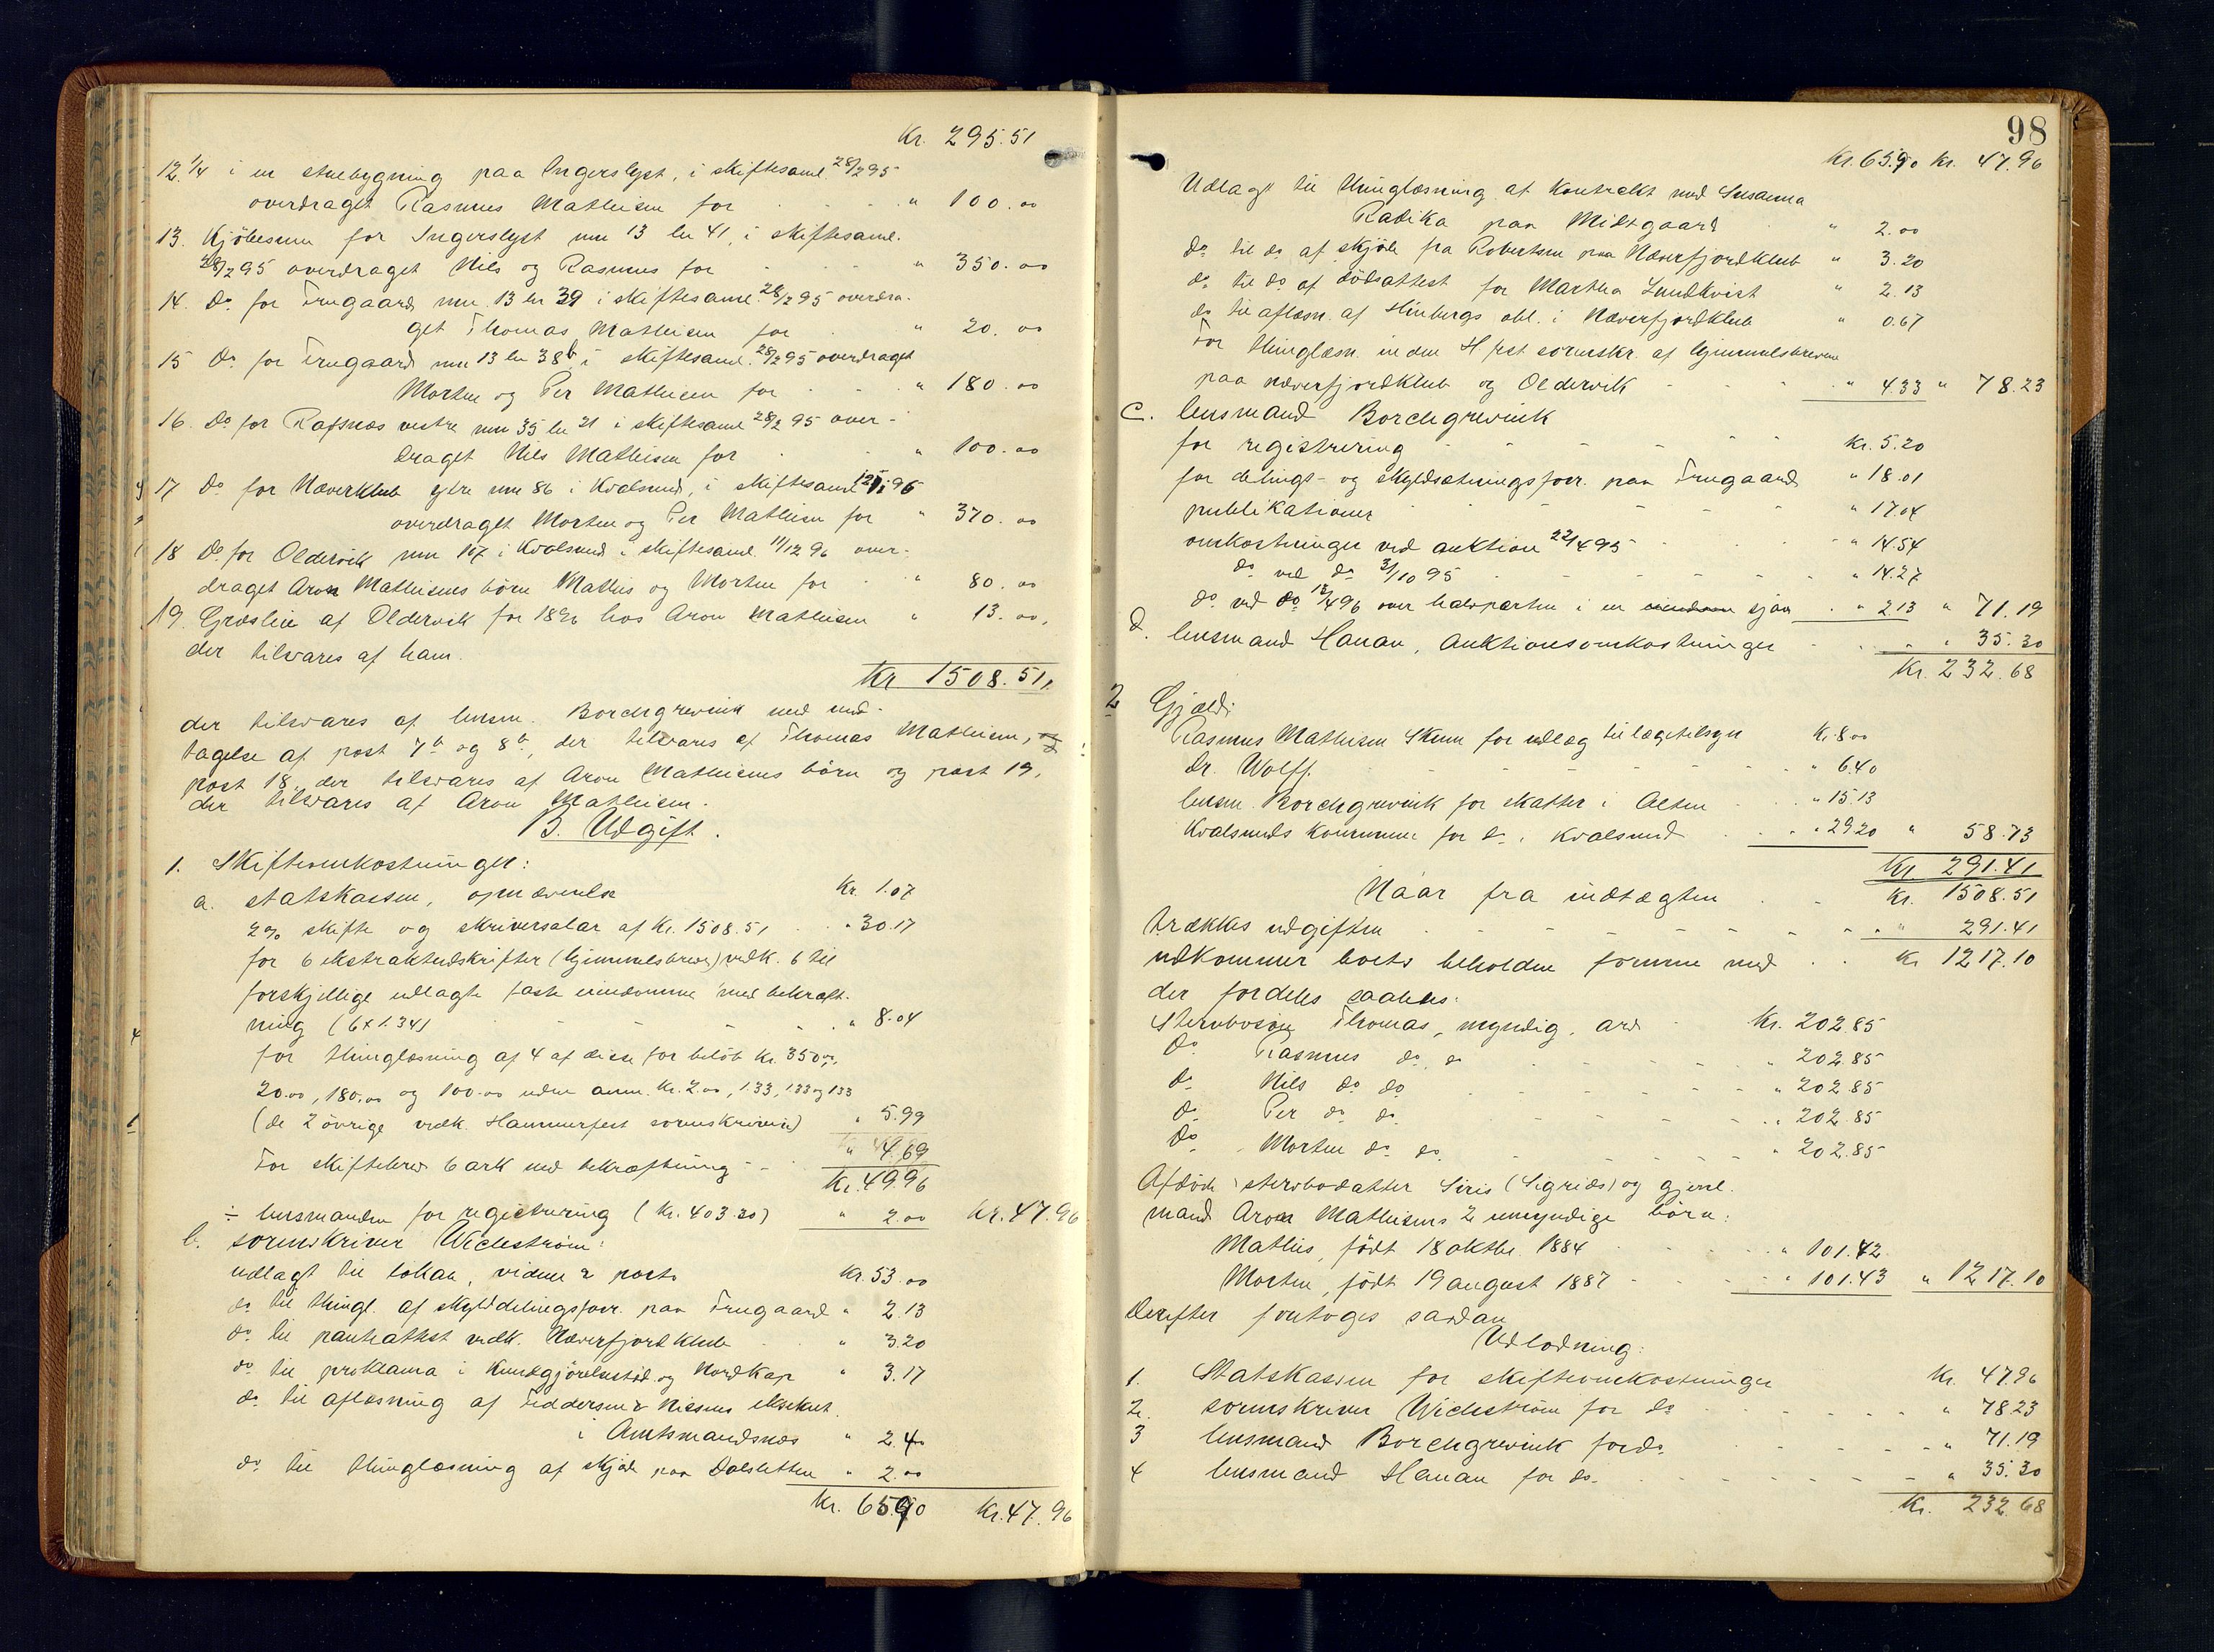 Kr. 295.51
12. 1/4 i en stuebygning paa Ingerslyst, i skiftesaml. 28/2 95
overdraget Rasmus Mathisen for " 100.00
13. Kjöbesum for Ingerslyst mn 13 ln 41, i skiftesaml.
28/2 95 overdraget Nils og Rasmus for " 350.00
14. Do for Trugaard mn. 13 ln 39 i skiftesaml. 28/2 95 overdra-
get Thomas Mathisen for " 20.00
15 Do for Trugaard mn 13 ln 38b, i skiftesaml. 28/2 95 overdraget
Morten og Per Mathisen for " 180.00
16. Do for Rafsnæs vestre mn 35 ln 21 i skiftesaml 28/2 95 over-
draget Nils Mathisen for " 100.00
17 Do for Næverklub ytre mn 86 i Kvalsund, i skiftesaml 96
overdraget Morten og Per Mathisen for " 370.00
18 Do for Oldervik mn 107 i Kvalsund i skiftesaml. 11/12 96 over-
draget Aron Mathisens börn Mathis og Morten for " 80.00
19. Græsleie af Oldervik for 1896 hos Aron Mathisen " 13.00,
der tilsvares af ham.
Kr 1508.51,
der tilsvares af lensm. Borchgrevink med und-
tagelse af post 7b og 8b, der tilsvares af Thomas Mathisen, og
post 18, der tilsvares af Aron Mathisens börn og post 19,
der tilsvares af Aron Mathisen.
B. Udgift.
1. Skifteomkostninger:
a. statskassen, opnævnelse Kr. 1.07
2% skifte og skriversalar af Kr. 1508.51 " 30.17
for 6 ekstraktudskrifter (hjemmelsbreve) vedk. 6 til
forskjellige udlagte faste eiendomme med bekræft-
ning (6 x 1.34) " 8.04
for thinglæsning af 4 af disse for belöb kr. 350.00,
20.00, 180.00 og 100.00 uden anm. Kr. 2.00, 1.33, 1.33 og 1.33
(de 2 övrige vedk. Hammerfest sorenskriveri) " 5.99
For skiftebrev 6 ark med bekræftning " 4.69
Kr. 49.96
÷ lensmanden for registrering (kr. 403.20) " 2.00 Kr. 47.96
b. sorenskriver Wichström:
udlagt til lokale, vidner & porto Kr. 53.00
do til thingl. af skylddelingsforr. paa Trugaard " 2.13
do til panteattest vedk. Næverfjordklub " 3.20
do til proklama i Kundgjörelsestid. og Nordkap " 3.17
do til aflæsning af Feddersen & Nissens eksekut.
i Amtmandsnæs " 2.40
do til thinglæsning af skjöde paa Dalsletten " 2.00
Kr. 65.90 Kr. 47.96
98
Kr. 65.90 Kr. 47.96
Udlagt til thinglæsning af Kontrakt med Susanna
Radika paa Midtgaard " 2.00
do til do af skjöde fra Robertsen paa Næverfjordklub " 3.20
do til do af dödsattest for Martha Lundkvist " 2.13
do til aflæsn. af obl. i Næverfjordklub " 0.67
For thinglæsn. inden H.fest sorenskr. af hjemmelsbrevene
paa næverfjordklub og Oldervik " 4.33 " 78.23
c. lensmand Borchgrevink
for registrering Kr. 5.20
for delings- og skyldsætningsforr. paa Trugaard " 18.01
publikationer " 17.04
omkostninger ved auktion 22/4 95 " 14.54
do ved do 3/10 95 " 14.27
do ved do 12/4 96 over halvparten i en eiendom sjöen " 2.13 " 71.19
d. lensmand Hanan, Auktionsomkostninger " 35.30
Kr. 232.68
2 Gjæld:
Rasmus Mathisen Skum for udlæg til lægetilsyn Kr. 8.00
dr. Wolff. " 6.40
lensm. Borchgrevink for skatter i Alten " 15.13
Kvalsunds Kommune for do i Kvalsund " 29.20 " 58.73
Kr. 291.41
Naar fra indtægten Kr. 1508.51
trækkes udgiften " 291.41
udkommer boets beholdne formue med Kr 1217.10
der fordeles saaledes:
Stervbosön Thomas, myndig, arv Kr. 202.85
Do Rasmus do do " 202.85
do Nils do do " 202.85
do Per do do " 202.85
Do Morten do do " 202.85
Afdöde stervbodatter Siris (Sigrids) og gjenl.
mand Aron Mathisens 2 umyndige börn:
Mathis, födt 18 oktbr. 1884 " 101.42
Morten, födt 19 august 1887 " 101.43 " 1217.10
Derefter foretoges saadan
Udlodning:
1. Statskassen for skifteomkostninger Kr. 47.96
2. sorenskriver Wichström for do " 78.23
3 lensmand Borchgrevink for do " 71.19
4 lensmand Hanan for do " 35.30
Kr. 232.68